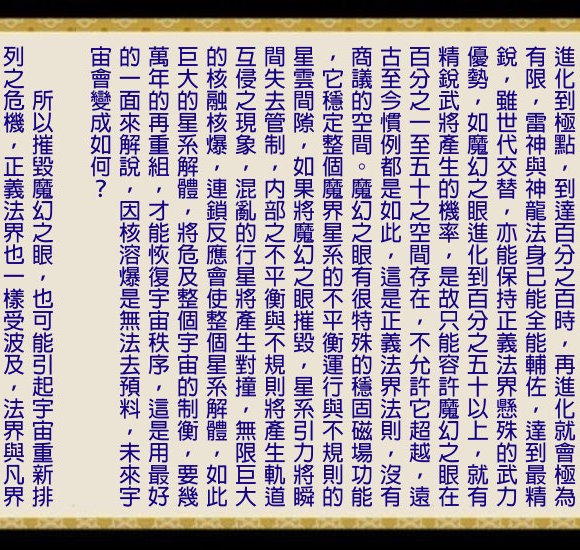 進化到極點，到達百分之百時，再進化就會極為
有限，雷神與神龍法身已能全能輔佐，達到最精
銳，雖世代交替，亦能保持正義法界懸殊的武力
優勢，如魔幻之眼進化到百分之五十以上，就有
精銳武將產生的機率，是故只能容許魔幻之眼在
百分之一至五十之空間存在，不允許它超越，遠
古至今慣例都是如此，這是正義法界法則，沒有
商議的空間。魔幻之眼有很特殊的穩固磁場功能
，它穩定整個魔界星系的不平衡運行與不規則的
星雲間隙，如果將魔幻之眼摧毀，星系引力將瞬
間失去管制，內部之不平衡與不規則將產生軌道
互侵之現象，混亂的行星將產生對撞，無限巨大
的核融核爆，連鎖反應會使整個星系解體，如此
巨大的星系解體，將危及整個宇宙的制衡，要幾
萬年的再重組，才能恢復宇宙秩序，這是用最好
的一面來解說，因核溶爆是無法去預料，未來宇
宙會變成如何？
所以摧毀魔幻之眼，也可能引起宇宙重新排
列之危機，正義法界也一樣受波及，法界與凡界